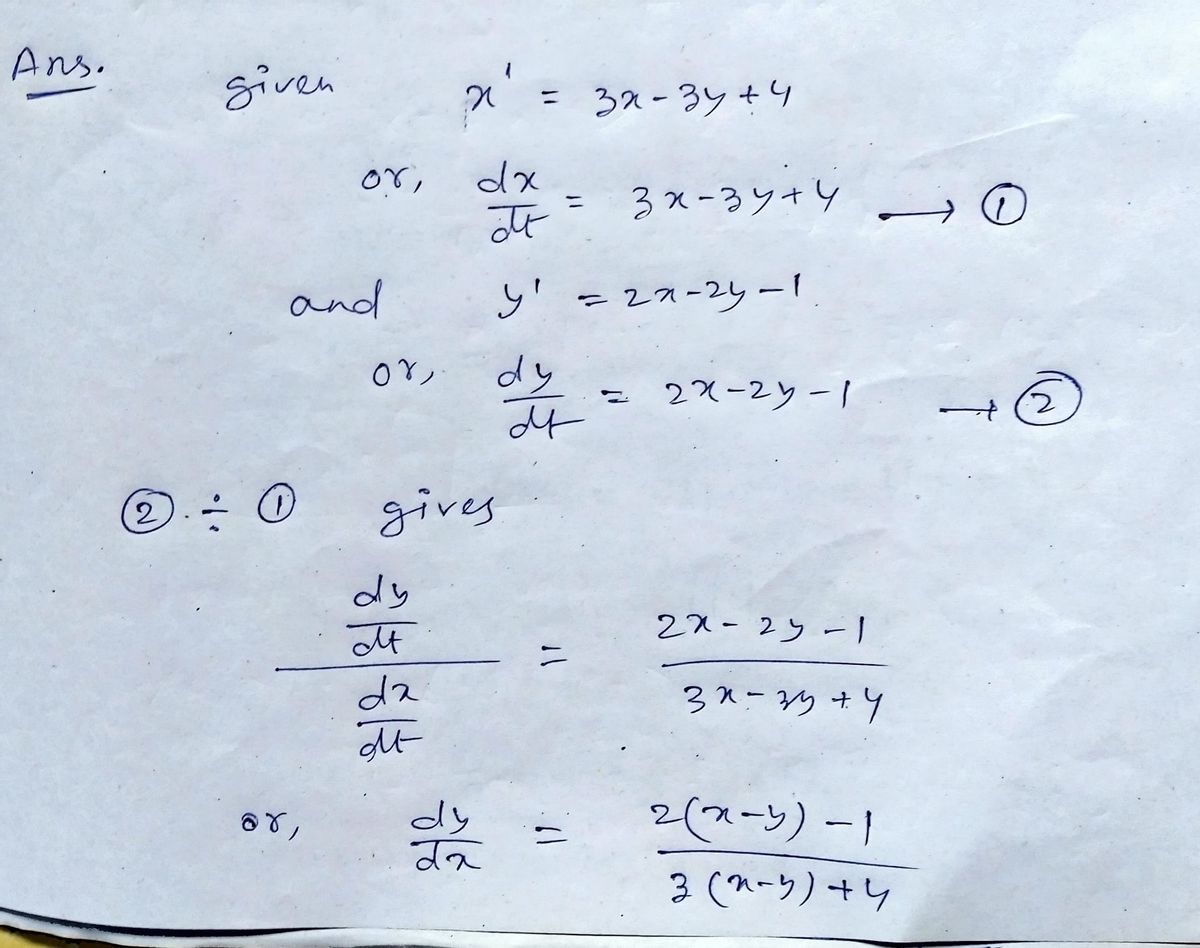 Ans. given x' = 3x-3y+4
or, dx/dt = 3x-3y+4 → ①
and y' = 2x-2y-1.
or, dy/dt = 2x-2y-1 → ②
② ÷ ① gives
(dy/dt)/(dx/dt) = (2x-2y-1)/(3x-3y+4)
or, dy/dx = (2(x-y)-1)/(3(x-y)+4)